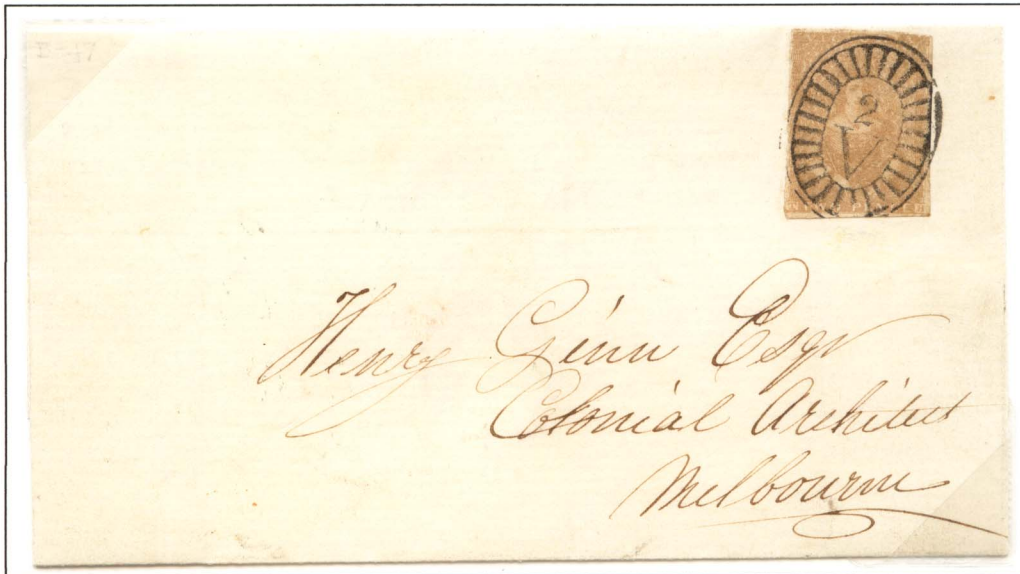 2
V
Henry Ginn Esqr
Colonial Architect
Melbourne